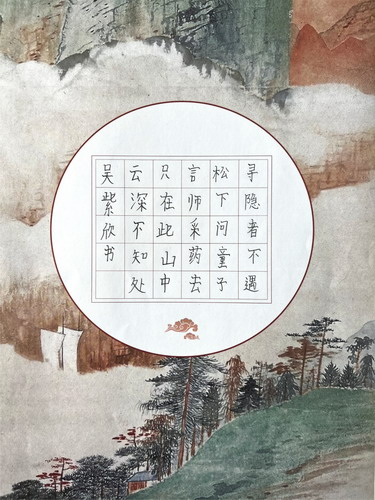 寻隐者不遇
松下问童子
言师采药去
只在此山中
云深不知处
吴紫欣书